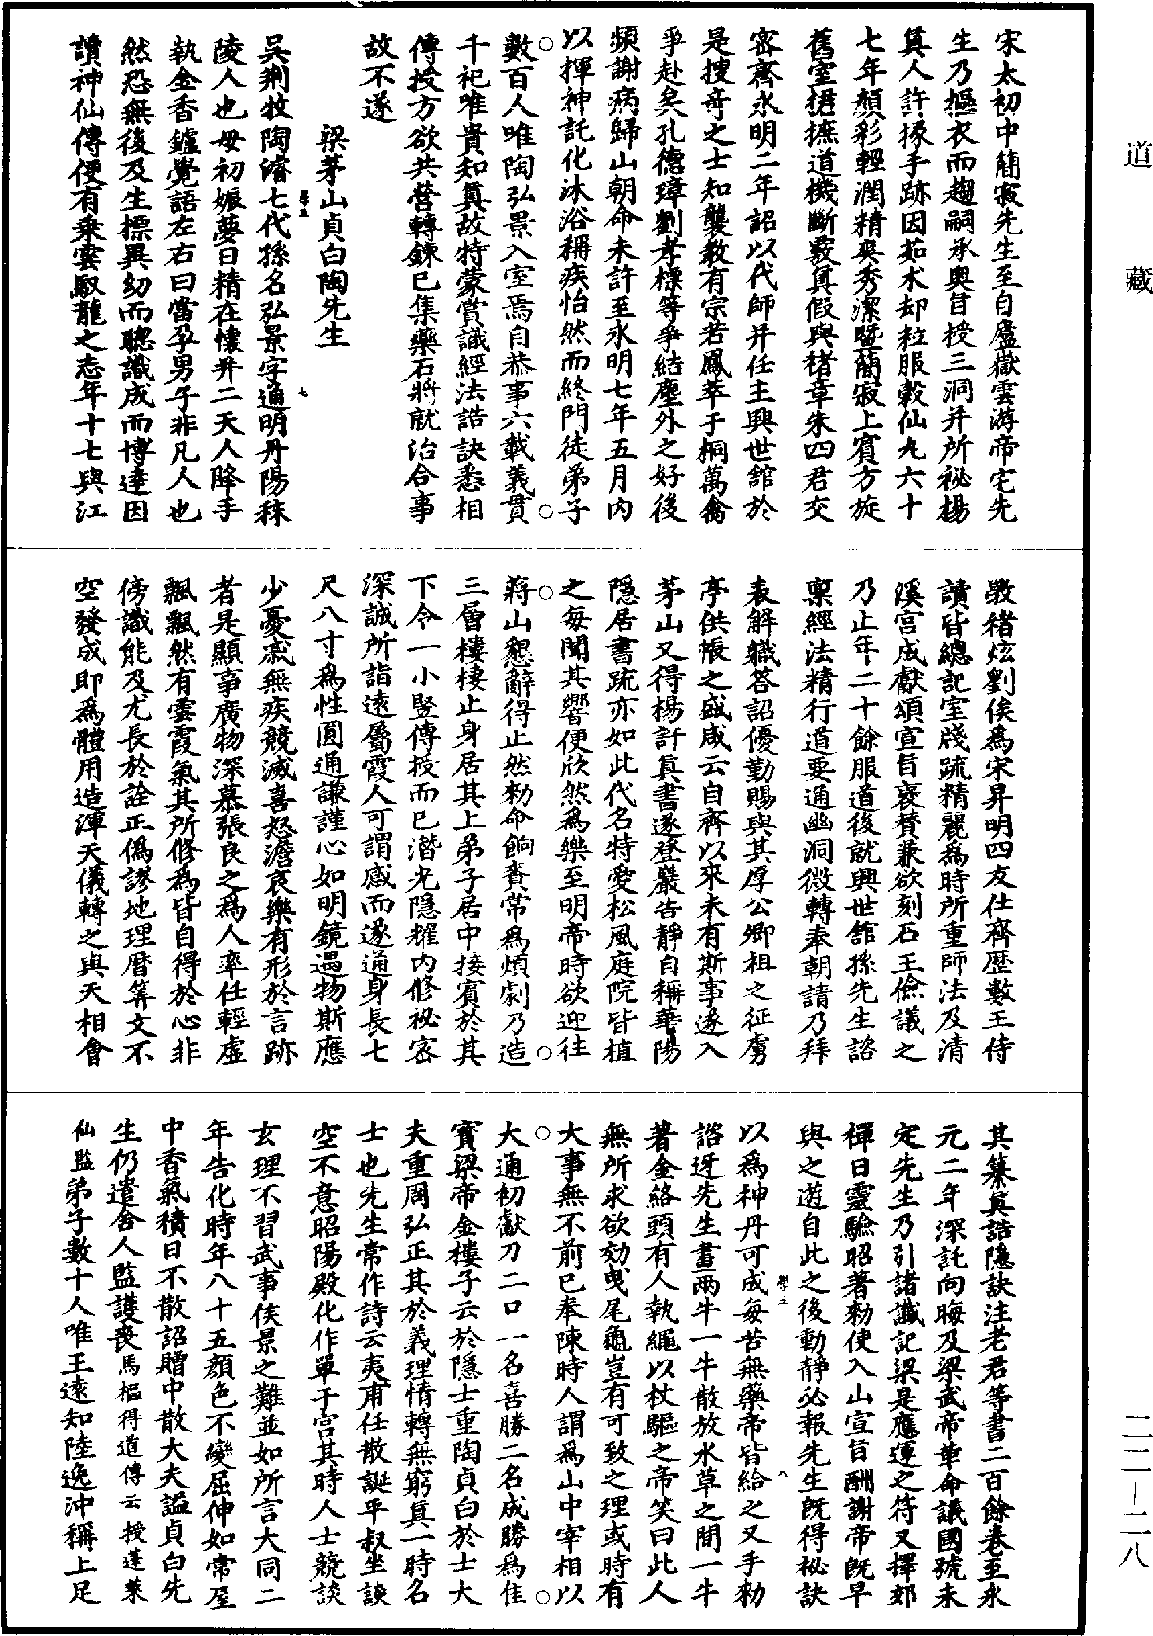 道藏
二二—二八
宋太初中簡寂先生至自廬嶽雲游帝宅先
生乃摳衣而趨嗣承奧旨授三洞并所祕楊
真人許掾手跡因茹术却粒服穀仙丸六十
七年顏彩輕潤精爽秀潔暨簡寂上賓方旋
舊室捃摭道機斷覈真假與褚章朱四君交
密齊永明二年詔以代師并任主興世館於
是搜奇之士知襲教有宗若鳳萃于桐萬禽
爭赴矣孔德璋劉孝標等爭結塵外之好後
頻謝病歸山朝命未許至永明七年五月內
以揮神託化沐浴稱疾怡然而終門徒弟子
數百人唯陶弘景入室焉自恭事六載義貫
千祀唯貴知真故特蒙賞識經法誥訣悉相
傳授方欲共營轉鍊已集藥石將就治合事
故不遂
梁茅山貞白陶先生
吳荆牧陶濬七代孫名弘景字通明丹陽秣
陵人也母初娠夢日精在懷并二天人降手
執金香鑪覺語左右曰當孕男子非凡人也
然恐無後及生標異幼而聰識成而博達因
讀神仙傳便有乘雲馭龍之志年十七與江
斆褚炫劉俟為宋昇明四友仕齊歷數王侍
讀皆總記室牋疏精麗為時所重師法及清
溪宮成獻頌宣旨褒贊兼欲刻石王儉議之
乃止年二十餘服道後就興世館孫先生諮
稟經法精行道要通幽洞微轉奉朝請乃拜
表解職答詔優勤賜與其厚公卿祖之征虜
亭供帳之盛咸云自齊以來未有斯事遂入
茅山又得楊許真書遂登巖告靜自稱華陽
隱居書疏亦如此代名特愛松風庭院皆植
之每聞其響便欣然為樂至明帝時欲迎往
蔣山懇辭得止然勅命餉賚常為煩劇乃造
三層樓棲止身居其上弟子居中接賓於其
下令一小豎傳授而已潛光隱耀內修祕密
深誠所詣遠屬霞人可謂感而遂通身長七
尺八寸為性圓通謙謹心如明鏡遇物斯應
少憂戚無疾競滅喜怒澹哀樂有形於言跡
者是顯事廣物深慕張良之為人率任輕虛
飄飄然有雲霞氣其所修為皆自得於心非
傍識能及尤長於詮正偽謬地理曆筭文不
空發成即為體用造渾天儀轉之與天相會
其纂真誥隱訣注老君等書二百餘卷至永
元二年深託向晦及梁武帝革命議國號未
定先生乃引諸讖記梁是應運之符又擇郊
禪日靈驗昭著勅使入山宣旨酬謝帝既早
與之遊自此之後動靜必報先生既得祕訣
以為神丹可成每苦無藥帝皆給之又手勅
諮迓先生畫兩牛一牛散放水草之間一牛
著金絡頭有人執繩以杖驅之帝笑曰此人
無所求欲効曳尾龜豈有可致之理或時有
大事無不前已奉陳時人謂為山中宰相以
大通初獻刀二口一名善勝二名成勝為佳
寶梁帝金樓子云於隱士重陶貞白於士大
夫重周弘正其於義理情轉無窮真一時名
士也先生常作詩云夷甫任散誕平叔坐談
空不意昭陽殿化作單于宮其時人士競談
玄理不習武事侯景之難並如所言大同二
年告化時年八十五顏色不變屈伸如常屋
中香氣積日不散詔贈中散大夫謚貞白先
生仍遣舍人監護喪馬樞得道傳云授蓬萊
仙監弟子數十人唯王遠知陸逸沖稱上足